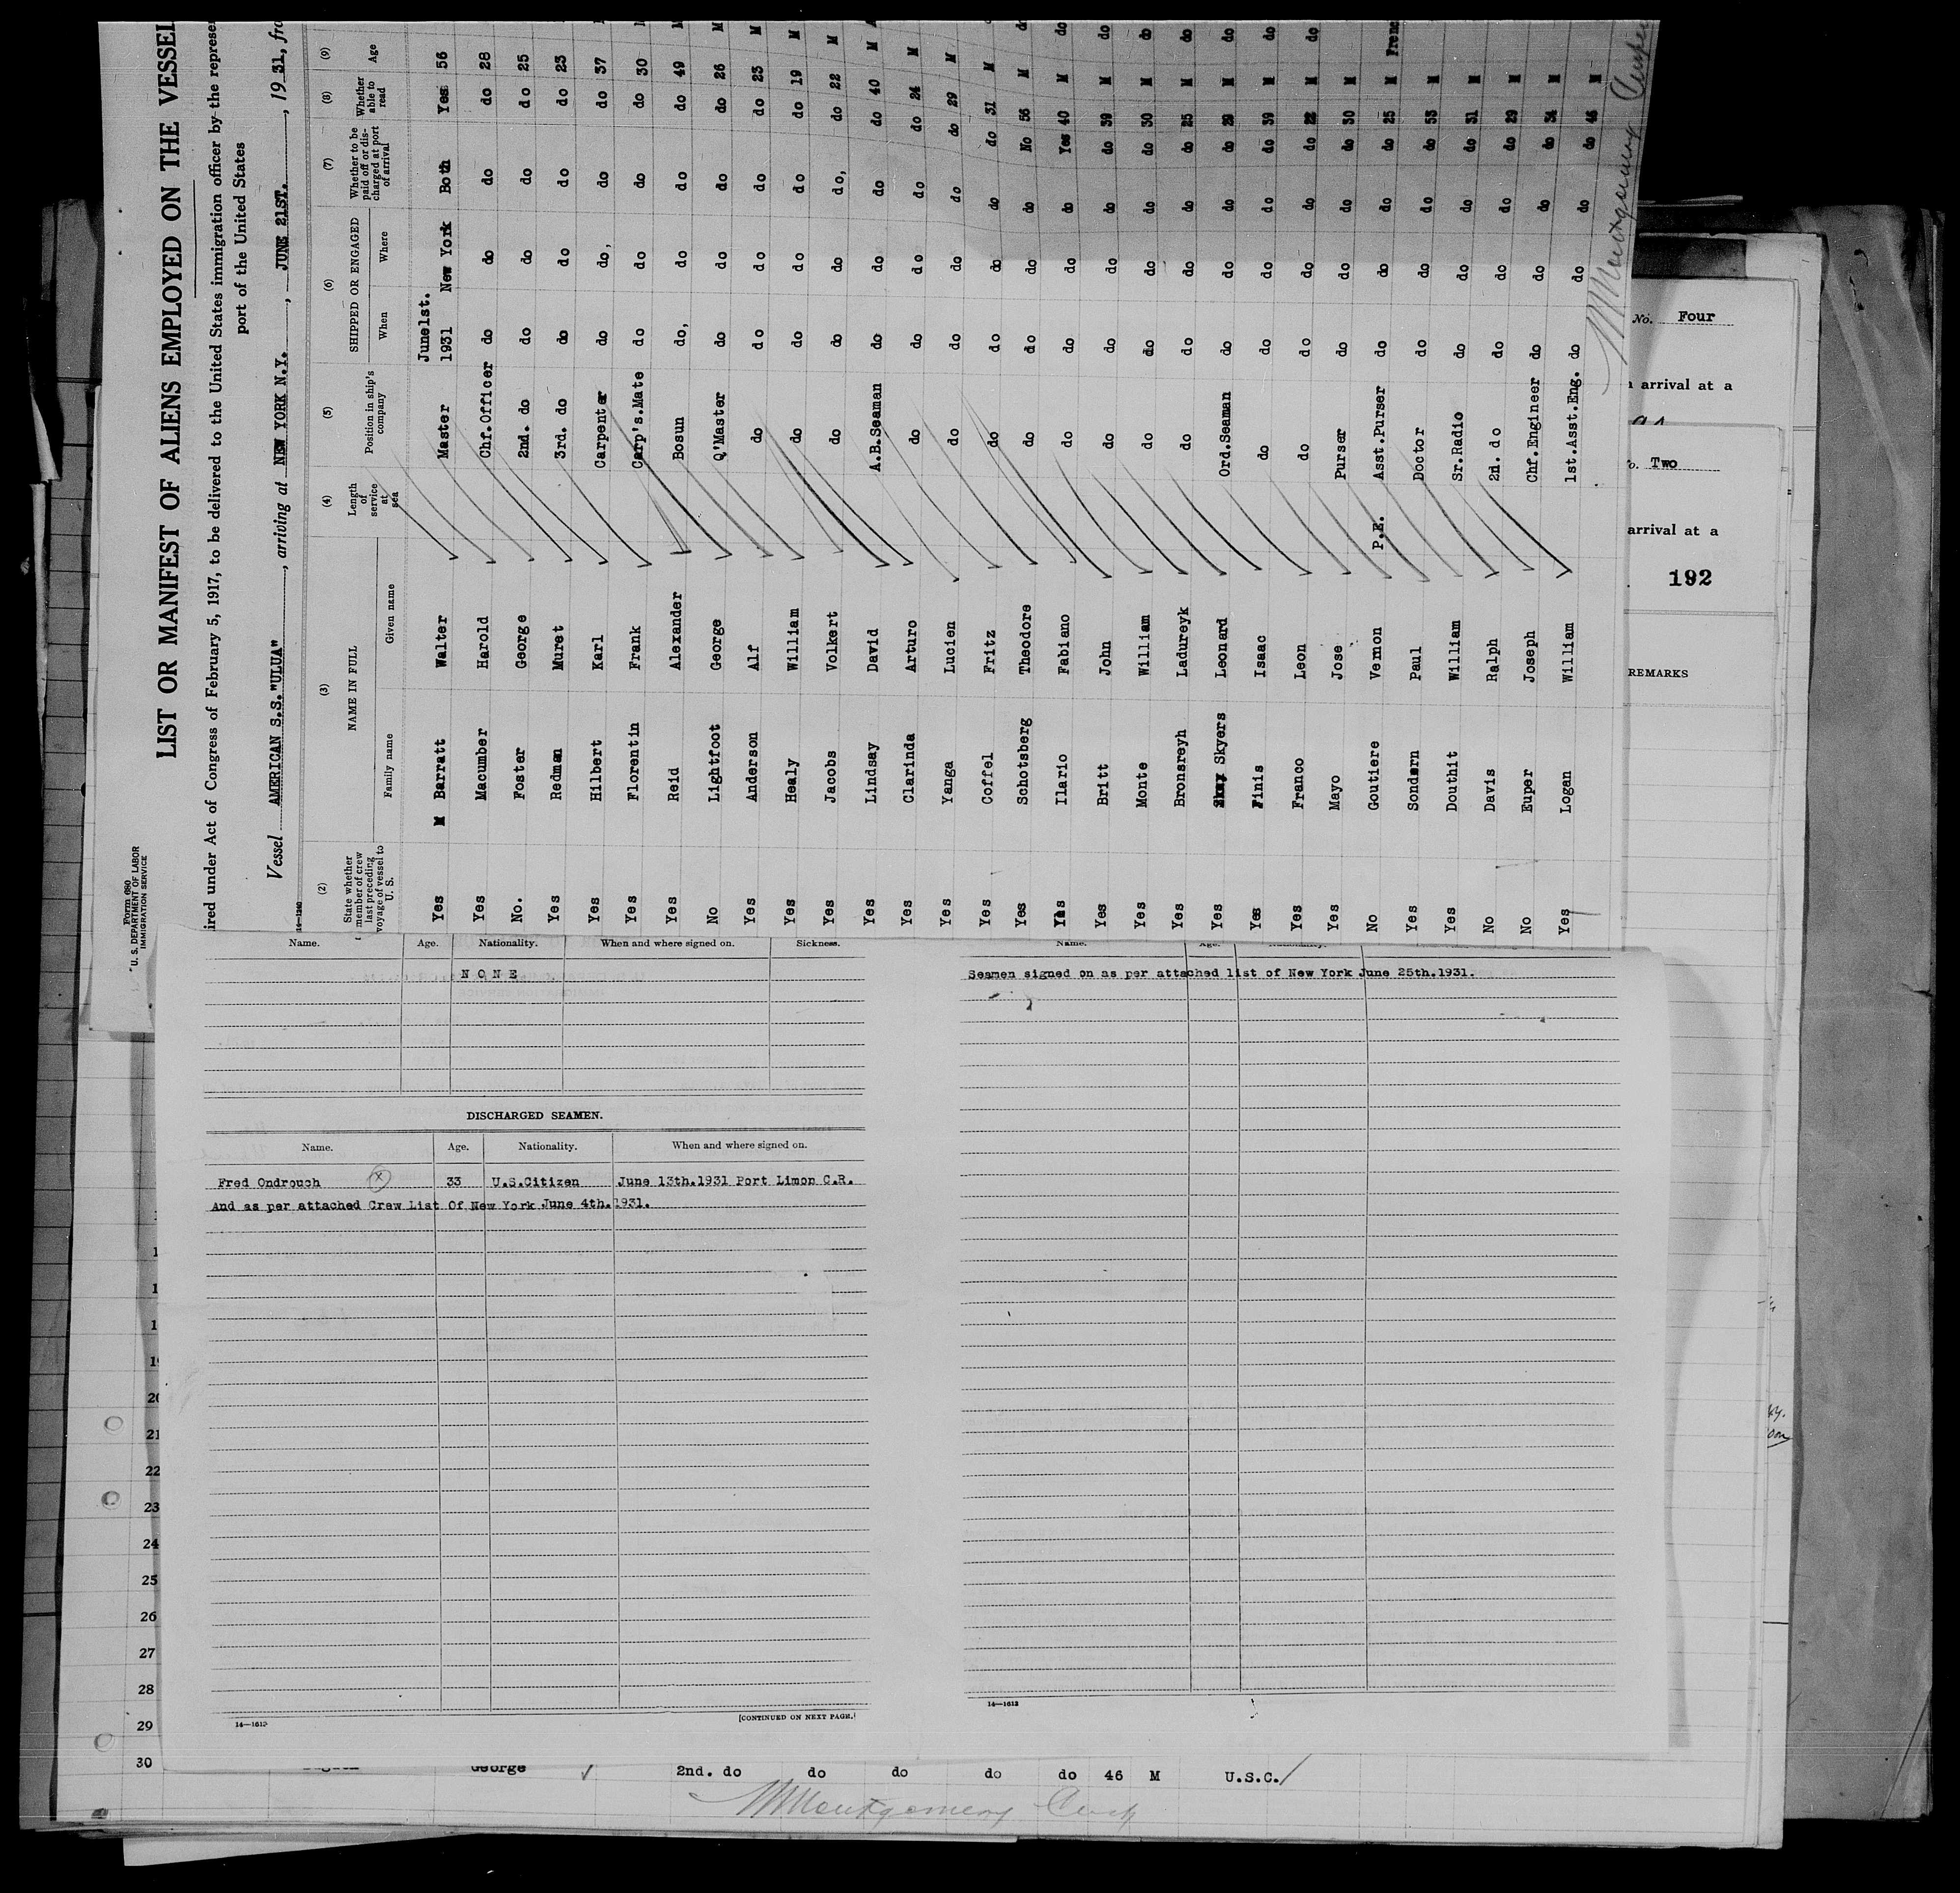 Form 680
U. S. DEPARTMENT OF LABOR
IMMIGRATION SERVICE
LIST OR MANIFEST OF ALIENS EMPLOYED ON THE VESSEL
ired under Act of Congress of February 5, 1917, to be delivered to the United States immigration officer by the represe
port of the United States
Vessel AMERICAN S.S."ULUA", arriving at NEW YORK N.Y., JUNE 21ST., 1931, fro
14-1240
(2) (3) (4) (5) (6) (7) (8) (9)
State whether member of crew last preceding voyage of vessel to U. S. NAME IN FULL Length of service at sea Position in ship's company SHIPPED OR ENGAGED Whether to be paid off or discharged at port of arrival Whether able to read Age
Family name Given name When Where
June1st.
Yes Barratt Walter Master 1931 New York Both Yes 56
Yes Macumber Harold Chf.Officer do do do do 28
No. Foster George 2nd. do do do do do 25
Yes Redman Muret 3rd. do do do do do 23
Yes Hilbert Karl Carpenter do do, do do 37
Yes Florentin Frank Carp's.Mate do do do do 30
Yes Reid Alexander Bosun do, do do do 49
No Lightfoot George Q'Master do do do do 26 M
Yes Anderson Alf do do do do do 23 M
Yes Healy William do do do do do 19 M
Yes Jacobs Volkert do do do do, do 22 M
Yes Lindsay David A.B.Seaman do do do do 40 M
Yes Clarinda Arturo do do do do do 24 M
Yes Yanga Lucien do do do do do 29 M
Yes Coffel Fritz do do do do do 31 M
Yes Schotsberg Theodore do do do do No 56 M do
Yes Ilario Fabiano do do do do Yes 40 M do
Yes Britt John do do do do do 39 M do
Yes Monte William do do do do do 30 M do
Yes Bronsreyh Ladureyk do do do do do 25 M do
Yes Skyers Leonard Ord.Seaman do do do do 29 M do
Yes Finis Isaac do do do do do 39 M do
Yes Franco Leon do do do do do 22 M do
Yes Mayo Jose Purser do do do do 30 M
No Goutiere Vernon P.E. Asst.Purser do do do do 25 M Frenc
Yes Sondern Paul Doctor do do do do 53 M
Yes Douthit William Sr.Radio do do do do 31 M
No Davis Ralph 2n. do do do do do 29 M
No Euper Joseph Chf.Engineer do do do do 34 M
Yes Logan William 1st.Asst.Eng. do do do do 46 M
No. Four
arrival at a
Two
arrival at a
192
REMARKS
Name. Age. Nationality. When and where signed on. Sickness.
NONE
DISCHARGED SEAMEN.
Name. Age. Nationality. When and where signed on.
Fred Ondrouch X 33 U.S.Citizen June 13th.1931 Port Limon C.R.
And as per attached Crew List Of New York June 4th.1931.
14—1612
[CONTINUED ON NEXT PAGE.]
Name. Age. Nationality.
Seamen signed on as per attached list of New York June 25th.1931.
14—1612
21
22
23
24
25
26
27
28
29
30 George 2nd. do do do do do 46 M U.S.C.
Montgomery